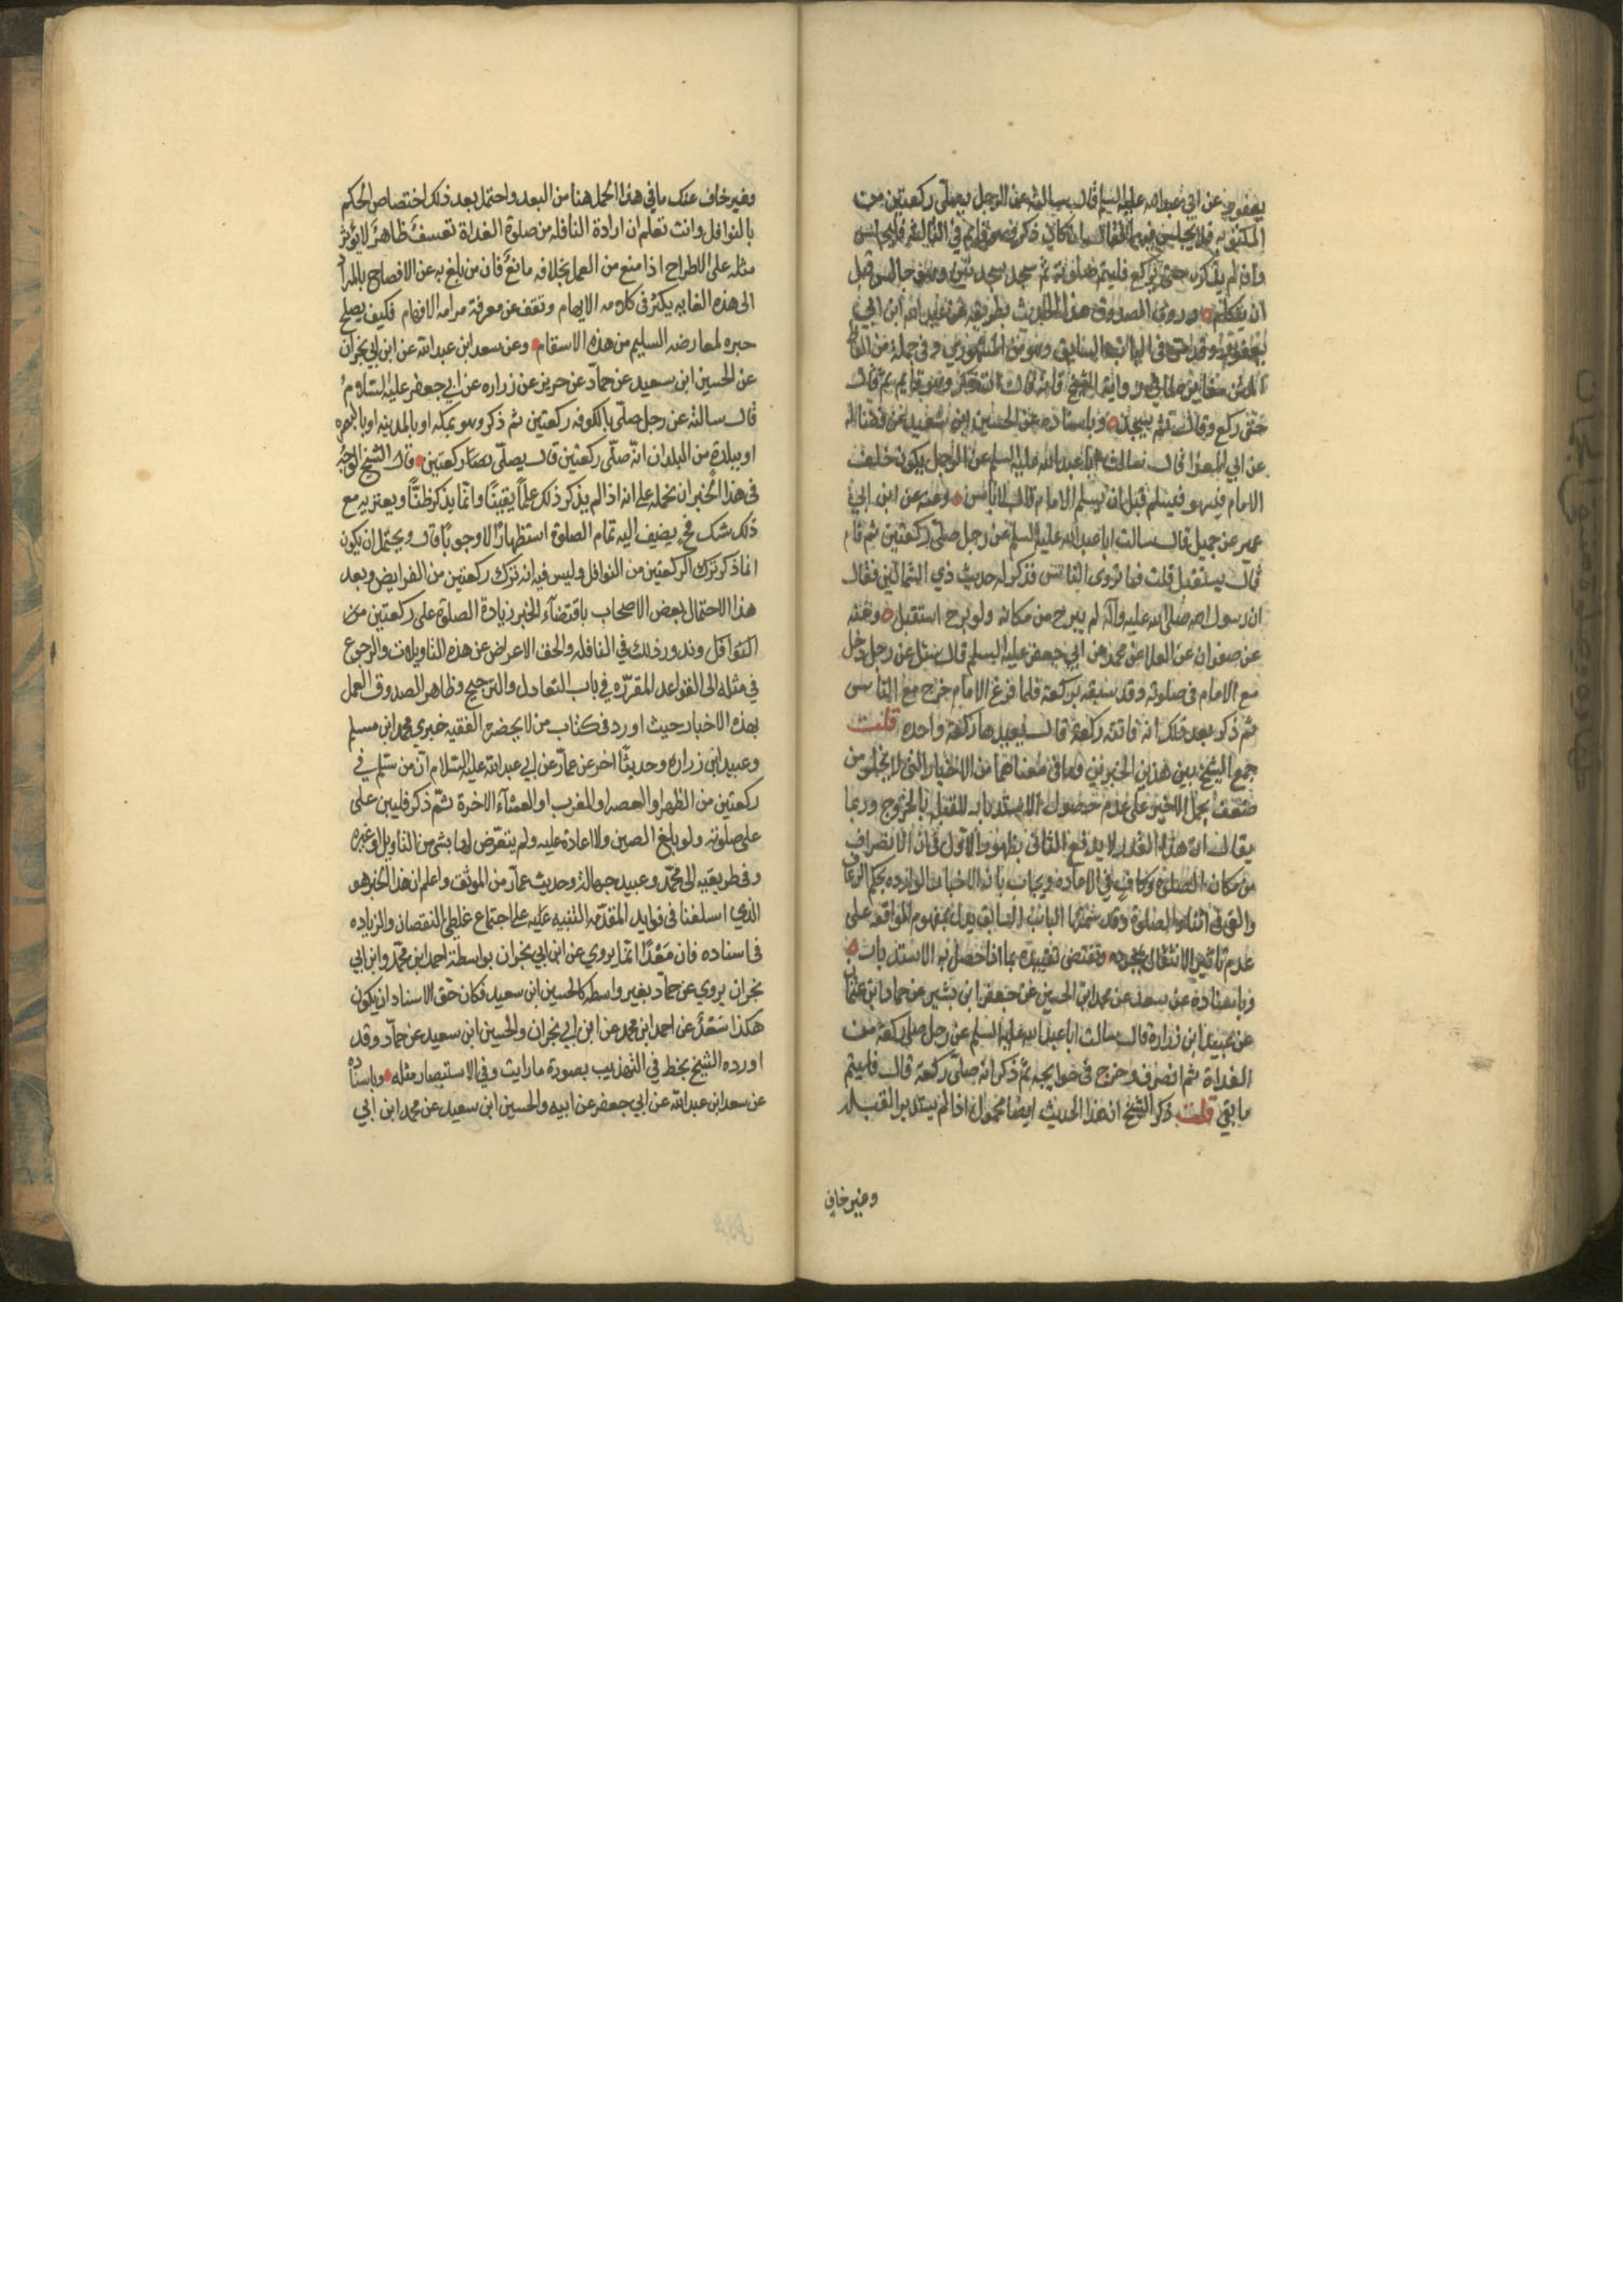 يعفور عن ابي عبد الله عليه السلم قال سالته عن الرجل يصلى ركعتين من
المكتوبه فلا يجلس فيهما فقال ان كان ذكر وهو قايم في الثالثه فليجلس
وان لم يذكر حتى يركع فليتم صلوته ثم يسجد سجدتين وهو جالس قبل
ان يتكلم وروى الصدوق هذا الحديث بطريقه عن عبد الله ابن ابي
يعفور وقد مضى في الباب السابق وهو من المشهوري وفي جملة من
المتن مغايرة لما في رواية الشيخ فانه قال وهو قايم ثم قال
حتى ركع وقال ثم يسجد وباسناده عن الحسين ابن سعيد عن فضاله
عن ابي المعزا قال سالت ابا عبد الله عليه السلم عن الرجل يكون خلف
الامام فيسهو فيسلم قبل ان يسلم الامام قال لا باس وعنه عن ابن ابي
عمير عن جميل قال سالت ابا عبد الله عليه السلم عن رجل صلى ركعتين ثم قام
قال يستقبل قلت فما يروى الناس فذكر له حديث ذي الشمالين فقال
ان رسول الله صلى الله عليه وآله لم يبرح من مكانه ولو برح استقبل وعنه
عن صفوان عن العلا عن محمد عن ابي جعفر عليه السلم قال سئل عن رجل دخل
مع الامام في صلوته وقد سبقه بركعة فلما فرغ الامام خرج مع الناس
ثم ذكر بعد ذلك انه فاتته ركعة قال يعيدها ركعة واحده قلت
جمع الشيخ بين هذين الخبرين وما في معناهما من الاخبار التي لا يخلو من
ضعف بحمل الاخير على عدم حصول الاستدبار للقبله بالخروج وربما
يقال ان هذا القدر لا يدفع الثاني بظهور الاول في ان الانصراف
من مكان الصلوة كاف في الاعاده ويجاب بان الاخبار الوارده بحكم الرعاف
والقى في اثناء الصلوة وقد تضمنها الباب السابق يدل بمفهوم الموافقه على
عدم تاثير الانتقال بمجرده وتقتضى تقييده بما اذا حصل به الاستدبار
وباسناده عن سعد عن محمد ابن الحسين عن جعفر ابن بشير عن حماد ابن عثمان
عن عبيد ابن زرارة قال سالت ابا عبد الله عليه السلم عن رجل صلى ركعة من
الغداة ثم انصرف وخرج في حوايجه ثم ذكر انه صلى ركعة قال فليتم
ما بقي قلت ذكر الشيخ ان هذا الحديث ايضا محمول اذا لم يستدبر القبله
وغير خاف
وغير خاف عنك ما في هذا الحمل هنا من البعد واحتمل بعد ذلك اختصاص الحكم
بالنوافل وانت تعلم ان ارادة النافله من صلوة الغداة تعسف ظاهر لا يؤثر
مثله على الاطراح اذا منع من العمل بخلافه مانع فان من بلغ به عن الافصاح بالمراد
الى هذه الغايه يكثر في كلامه الايهام وتقف عن معرفة مرامه الافهام فكيف يصلح
خبره لمعارضه السليم من هذه الاسقام وعن سعد ابن عبد الله عن ابن ابي نجران
عن الحسين ابن سعيد عن حماد عن حريز عن زراره عن ابي جعفر عليه السلام
قال سالته عن رجل صلى بالكوفه ركعتين ثم ذكر وهو بمكه او بالمدينه او بالبصره
او ببلدة من البلدان انه صلى ركعتين قال يصلى ركعتين قال الشيخ الوجه
في هذا الخبر ان نحمله على انه اذا لم يذكر ذلك علماً يقيناً وانما يذكر ظناً ويعتريه مع
ذلك شك فح يضيف اليه تمام الصلوة استظهاراً لا وجوباً قال ويحتمل ان يكون
انما ذكر ترك الركعتين من النوافل وليس فيه انه ترك ركعتين من الفرايض وبعد
هذا الاحتمال بعض الاصحاب باقتضاء الخبر زيادة الصلوة على ركعتين من
النوافل وندور ذلك في النافله والحق الاعراض عن هذه التاويلات والرجوع
في مثله الى القواعد المقرره في باب التعادل والترجيح وظاهر الصدوق العمل
بهذه الاخبار حيث اورد في كتاب من لا يحضره الفقيه خبري محمد ابن مسلم
وعبيد ابن زراره وحديثاً اخر عن عمار عن ابي عبد الله عليه السلام ان من سلم في
ركعتين من الظهر او العصر او المغرب او العشاء الاخرة ثم ذكر فليبن على
على صلوته ولو بلغ الصين ولا اعادة عليه ولم يتعرض لها بشي من التاويل او غيره
وفي طريقيه الى محمد وعبيد جهالة وحديث عمار من الموثق واعلم ان هذا الخبر هو
الذي اسلفنا في فوايد المقدمه التنبيه عليه على اجتماع غلطي النقصان والزياده
في اسناده فان سعداً انما يروي عن ابن ابي نجران بواسطة احمد ابن محمد وابن ابي
نجران يروي عن حماد بغير واسطه كالحسين ابن سعيد فكان حق الاسناد ان يكون
هكذا سعد عن احمد ابن محمد عن ابن ابي نجران والحسين ابن سعيد عن حماد وقد
اورده الشيخ بخط في التهذيب بصورة ما رايت وفي الاستبصار مثله وباسناده
عن سعد ابن عبد الله عن ابي جعفر عن ابيه والحسين ابن سعيد عن محمد ابن ابي